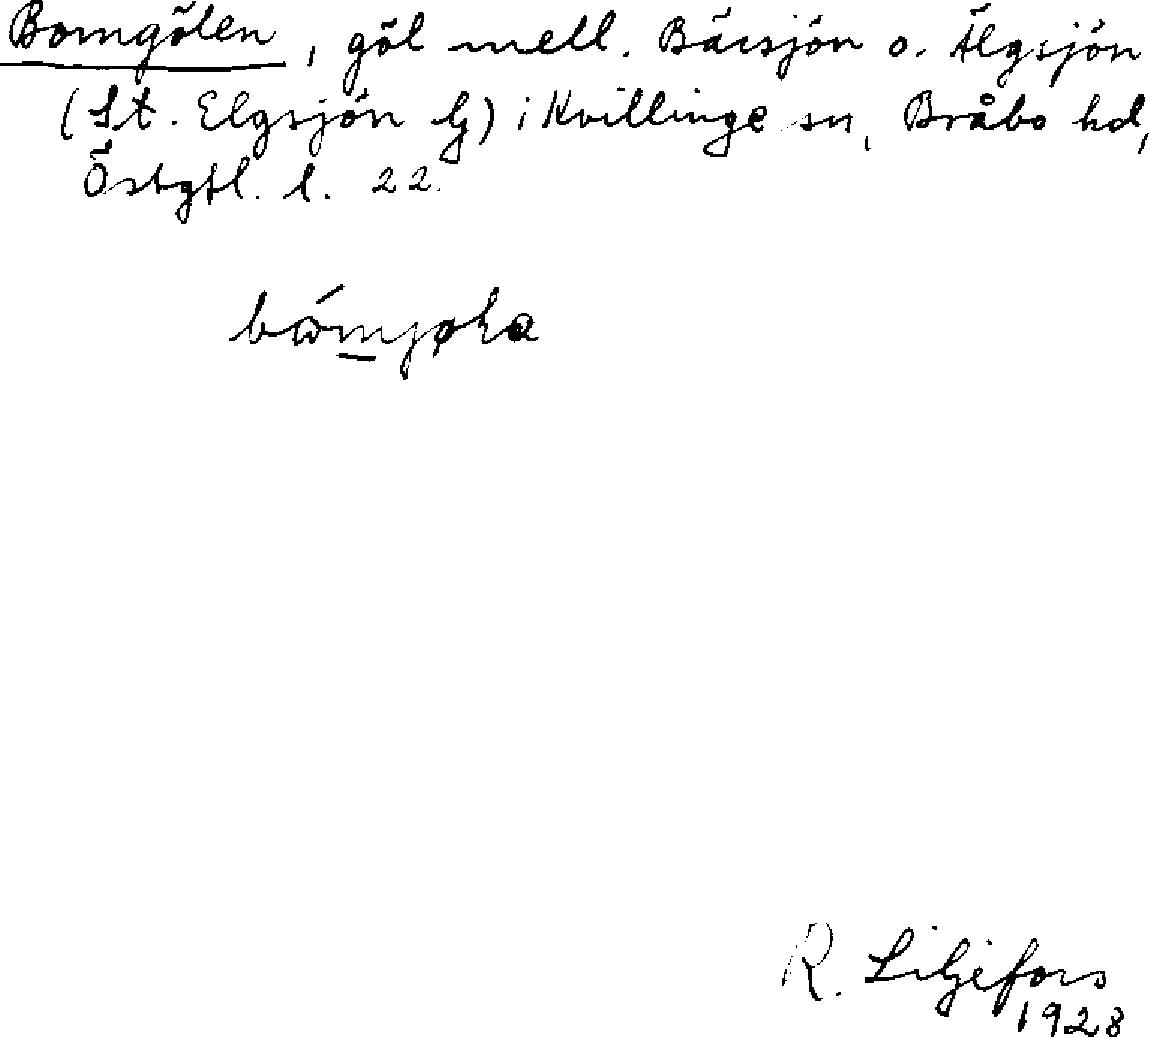 Bomgölen, göl mell. Bäcsjön o. Älgsjön
(St. Elgsjön G) i Kvillinge sn, Bråbo hd,
Östgtl. l. 22.
R. Liljefors
1928